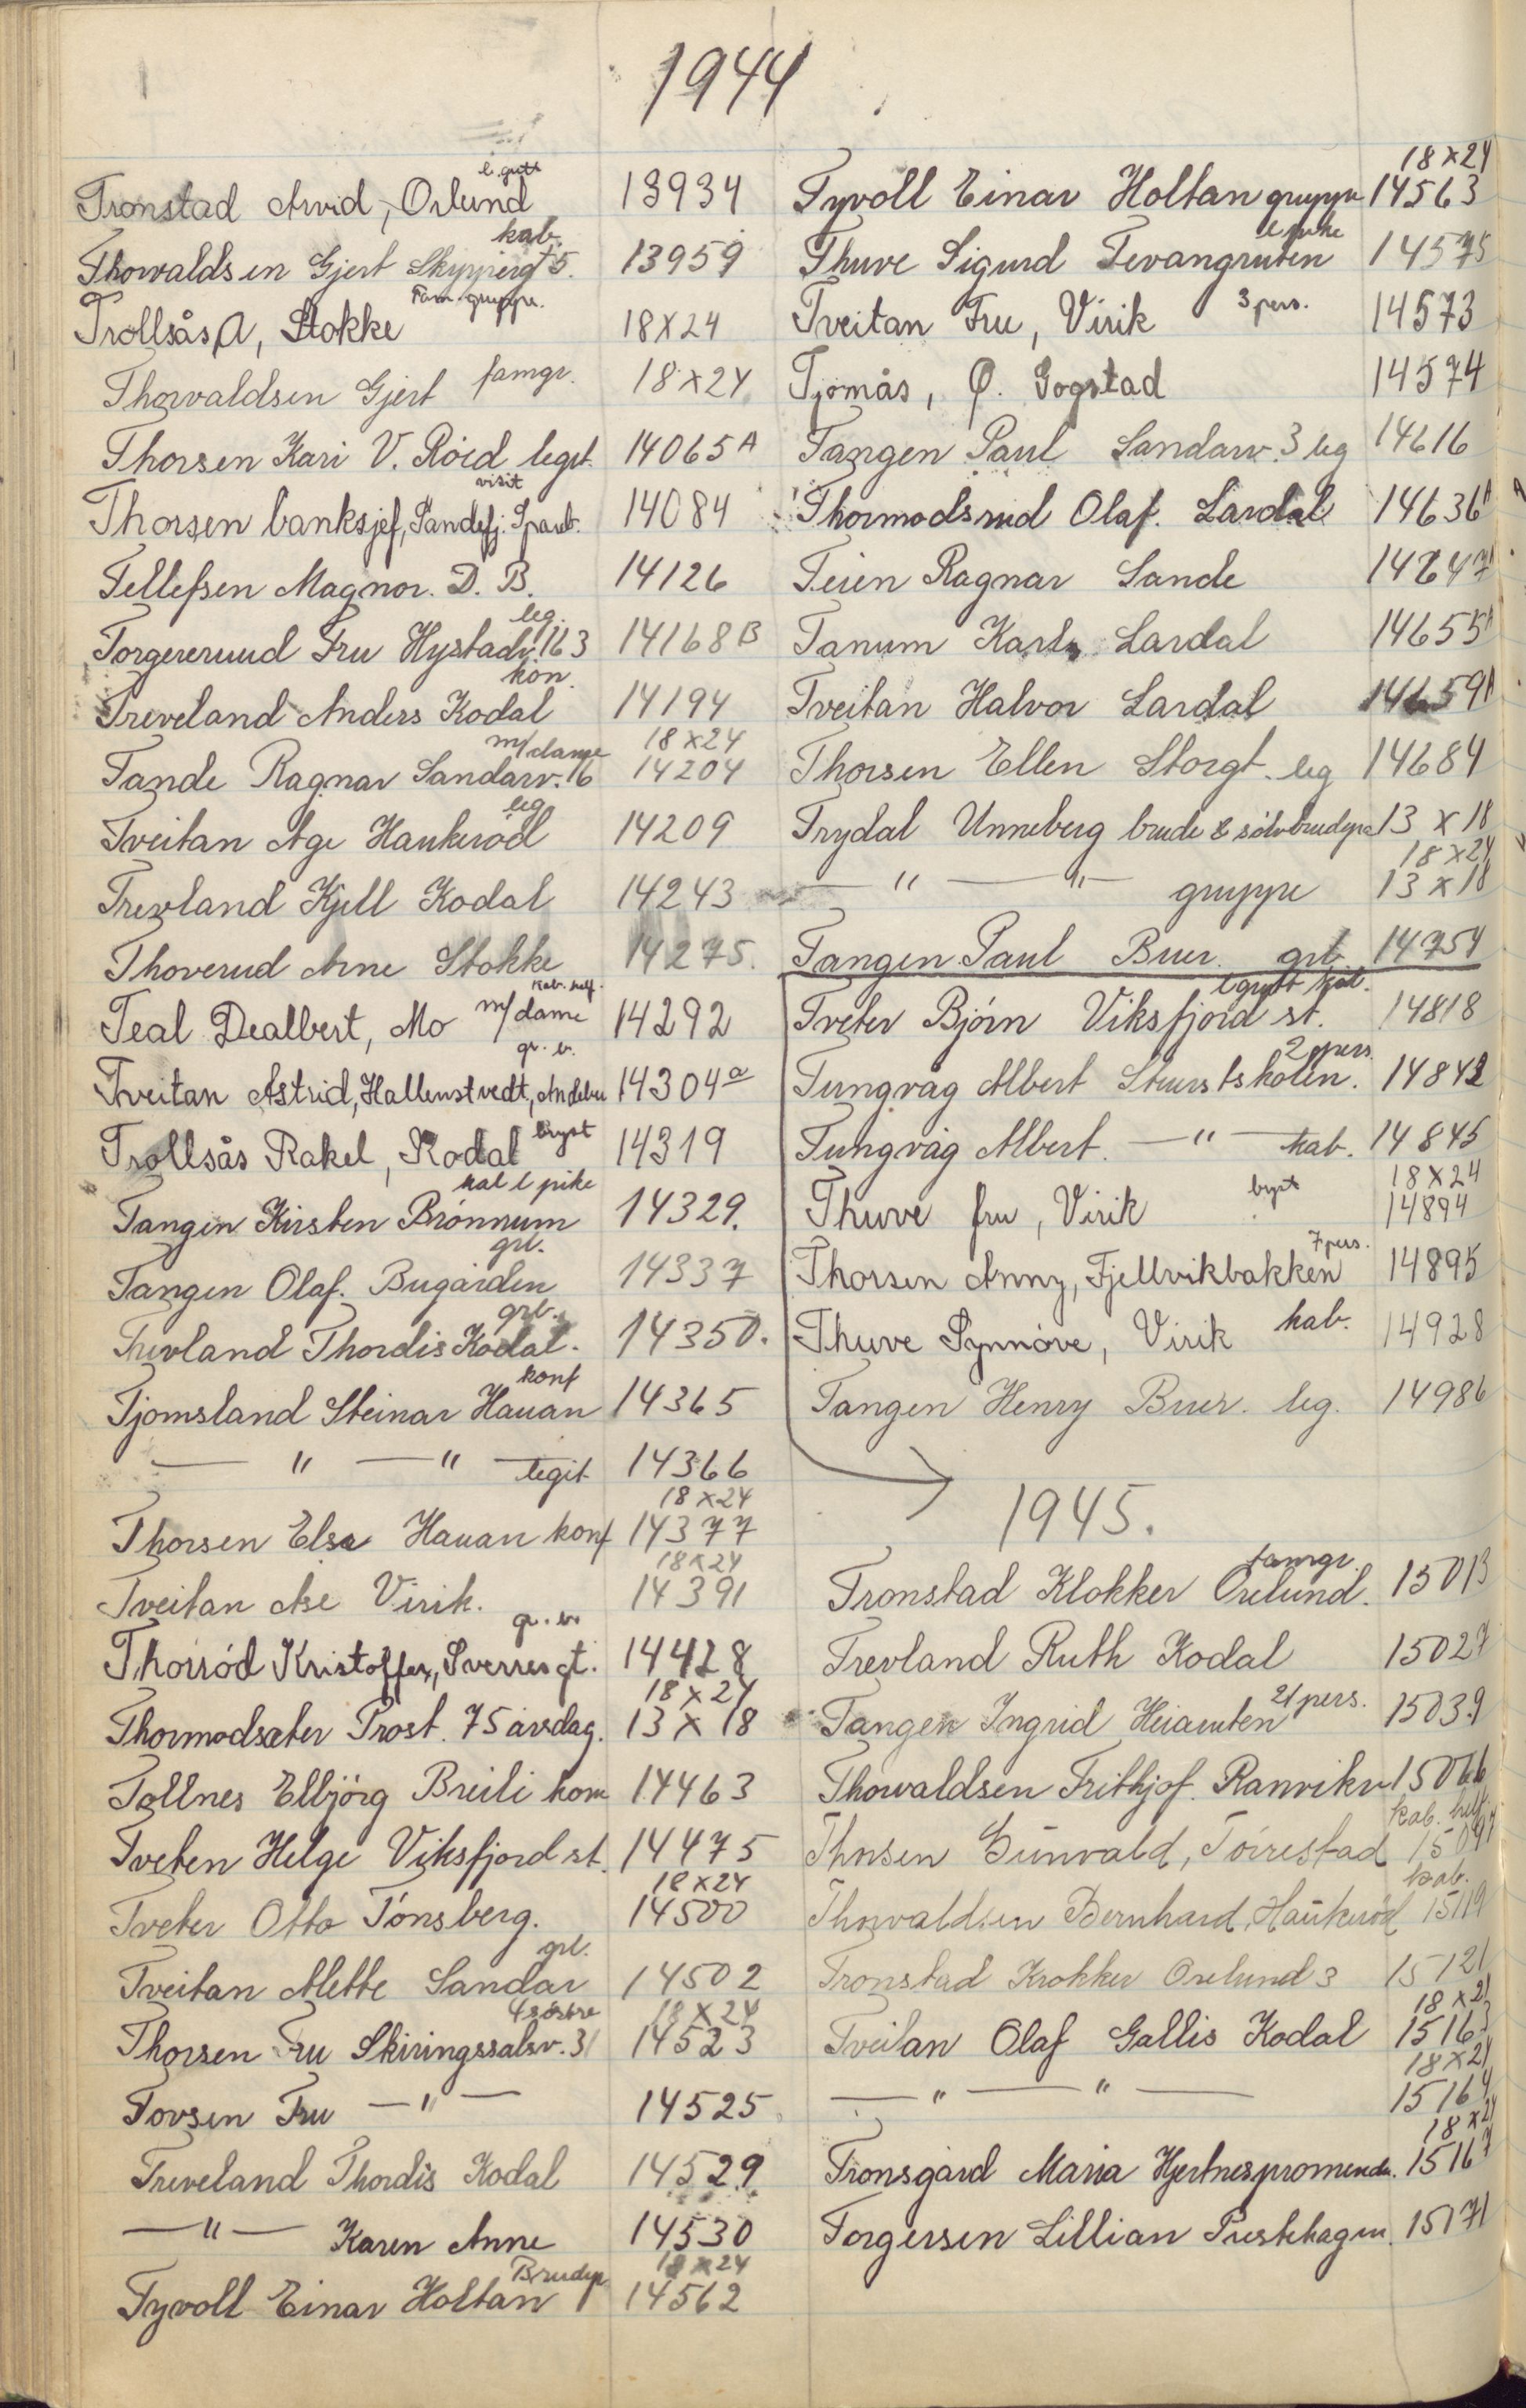 1944
Tronstad Arvid, Orlund l. gutt 13934
Thorvaldsen Gjert Skyppergt 5. kab. 13959
Trollsås A, Stokke Fam. gruppe. 18x24
Thorvaldsen Gjert famgr. 18x24
Thorsen Kari V. Röed legit 14065A
Thorsen banksjef, Sandefj. Spareb. visit 14084
Tellefsen Magnor. D. B. 14126
Torgererud Fru Hystadv. 163 leg. 14168B
Treveland Anders Kodal kon. 14194
Tande Ragnar Sandarv. 16 m/dame 18x24 14204
Tveitan Åge Haukeröd leg 14209
Trevland Kjell Kodal 14243
Thoverud Arne Stokke 14275.
Teal Dealbert, Mo m/dame kab. half. 14292
Tveitan Astrid, Hallenstvedt, Andebu gr. b. 14304a
Trollsås Rakel, Kodal bryst 14319
Tangen Kirsten Brönnum kab l pike 14329.
Tangen Olaf. Bugården grb. 14337
Trevland Thordis Kodal. grb. 14350.
Tjomsland Steinar Hauan konf 14365
— " — " — legit 14366
Thorsen Else Hauan konf 18x24 14377
Tveitan Åse Virik. 18x24 14391
Thorsöd Kristoffer, Sverresgt. gr. b. 14428
Thormodsæter Prost. 75 årsdag. 18x24 13x18
Tollnes Elbjörg Breili kom 14463
Tveten Helge Viksfjord st. 14475
Tveter Otto Tönsberg. 18x24 14500
Tveitan Mette Sandar grb. 14502
Thorsen Fru Skiringssalsv. 31 4 söstre 18x24 14523
Tovsen Fru — " — 14525
Treveland Thordis Kodal 14529
— " — Karen Anne 14530
Tyvoll Einar Holtan Brudep. 18x24 14562
Tyvoll Einar Holtan gruppe 18x24 14563
Thuve Sigurd Tevangruten l pike 14575
Tveitan Fru, Virik 3 pers. 14573
Tjomås, Ø. Gogstad 14574
Tangen Paul Sandarv. 3 leg 14616
Thormodsrud Olaf. Lardal 14636A
Teien Ragnar Sande 14647A
Tanum Karl Lardal 14655A
Tveitan Halvor Lardal 14659A
Thorsen Ellen Storgt. leg 14684
Trydal Unneberg brude & sölvbrudepar 13 x 18
— " — " — gruppe 18x24 13x18
Tangen Paul Buer. grb 14754
Tveter Björn Viksfjord st. l gutt kab. 14818
Tungvåg Albert Skurstskolen. 2 pers. 14842
Tungvåg Albert. — " — kab. 14845
Thuve fru, Virik bryst 18x24 14894
Thorsen Anny, Fjellvikbakken 7 pers. 14895
Thuve Synnöve, Virik kab. 14928
Tangen Henry Buer. leg. 14986
1945.
Tronstad Klokker Orelund. famgr. 15013
Trevland Ruth Kodal 15027
Tangen Ingrid Heiaruten 21 pers. 15039
Thorvaldsen Frithjof. Ranvikv 15066
Thorsen Gunvald, Törrestad kab. half. 15097
Thorvaldsen Bernhard, Haukeröd kab. 15119
Tronstad Krokker Orelund 3 15121
Tveitan Olaf Gallis Kodal 18x24 15163
— " — " — 18x24 15164
Tronsgård Maria Hjertnespromenade. 18x24 15167
Torgersen Lillian Prestehagen. 15171